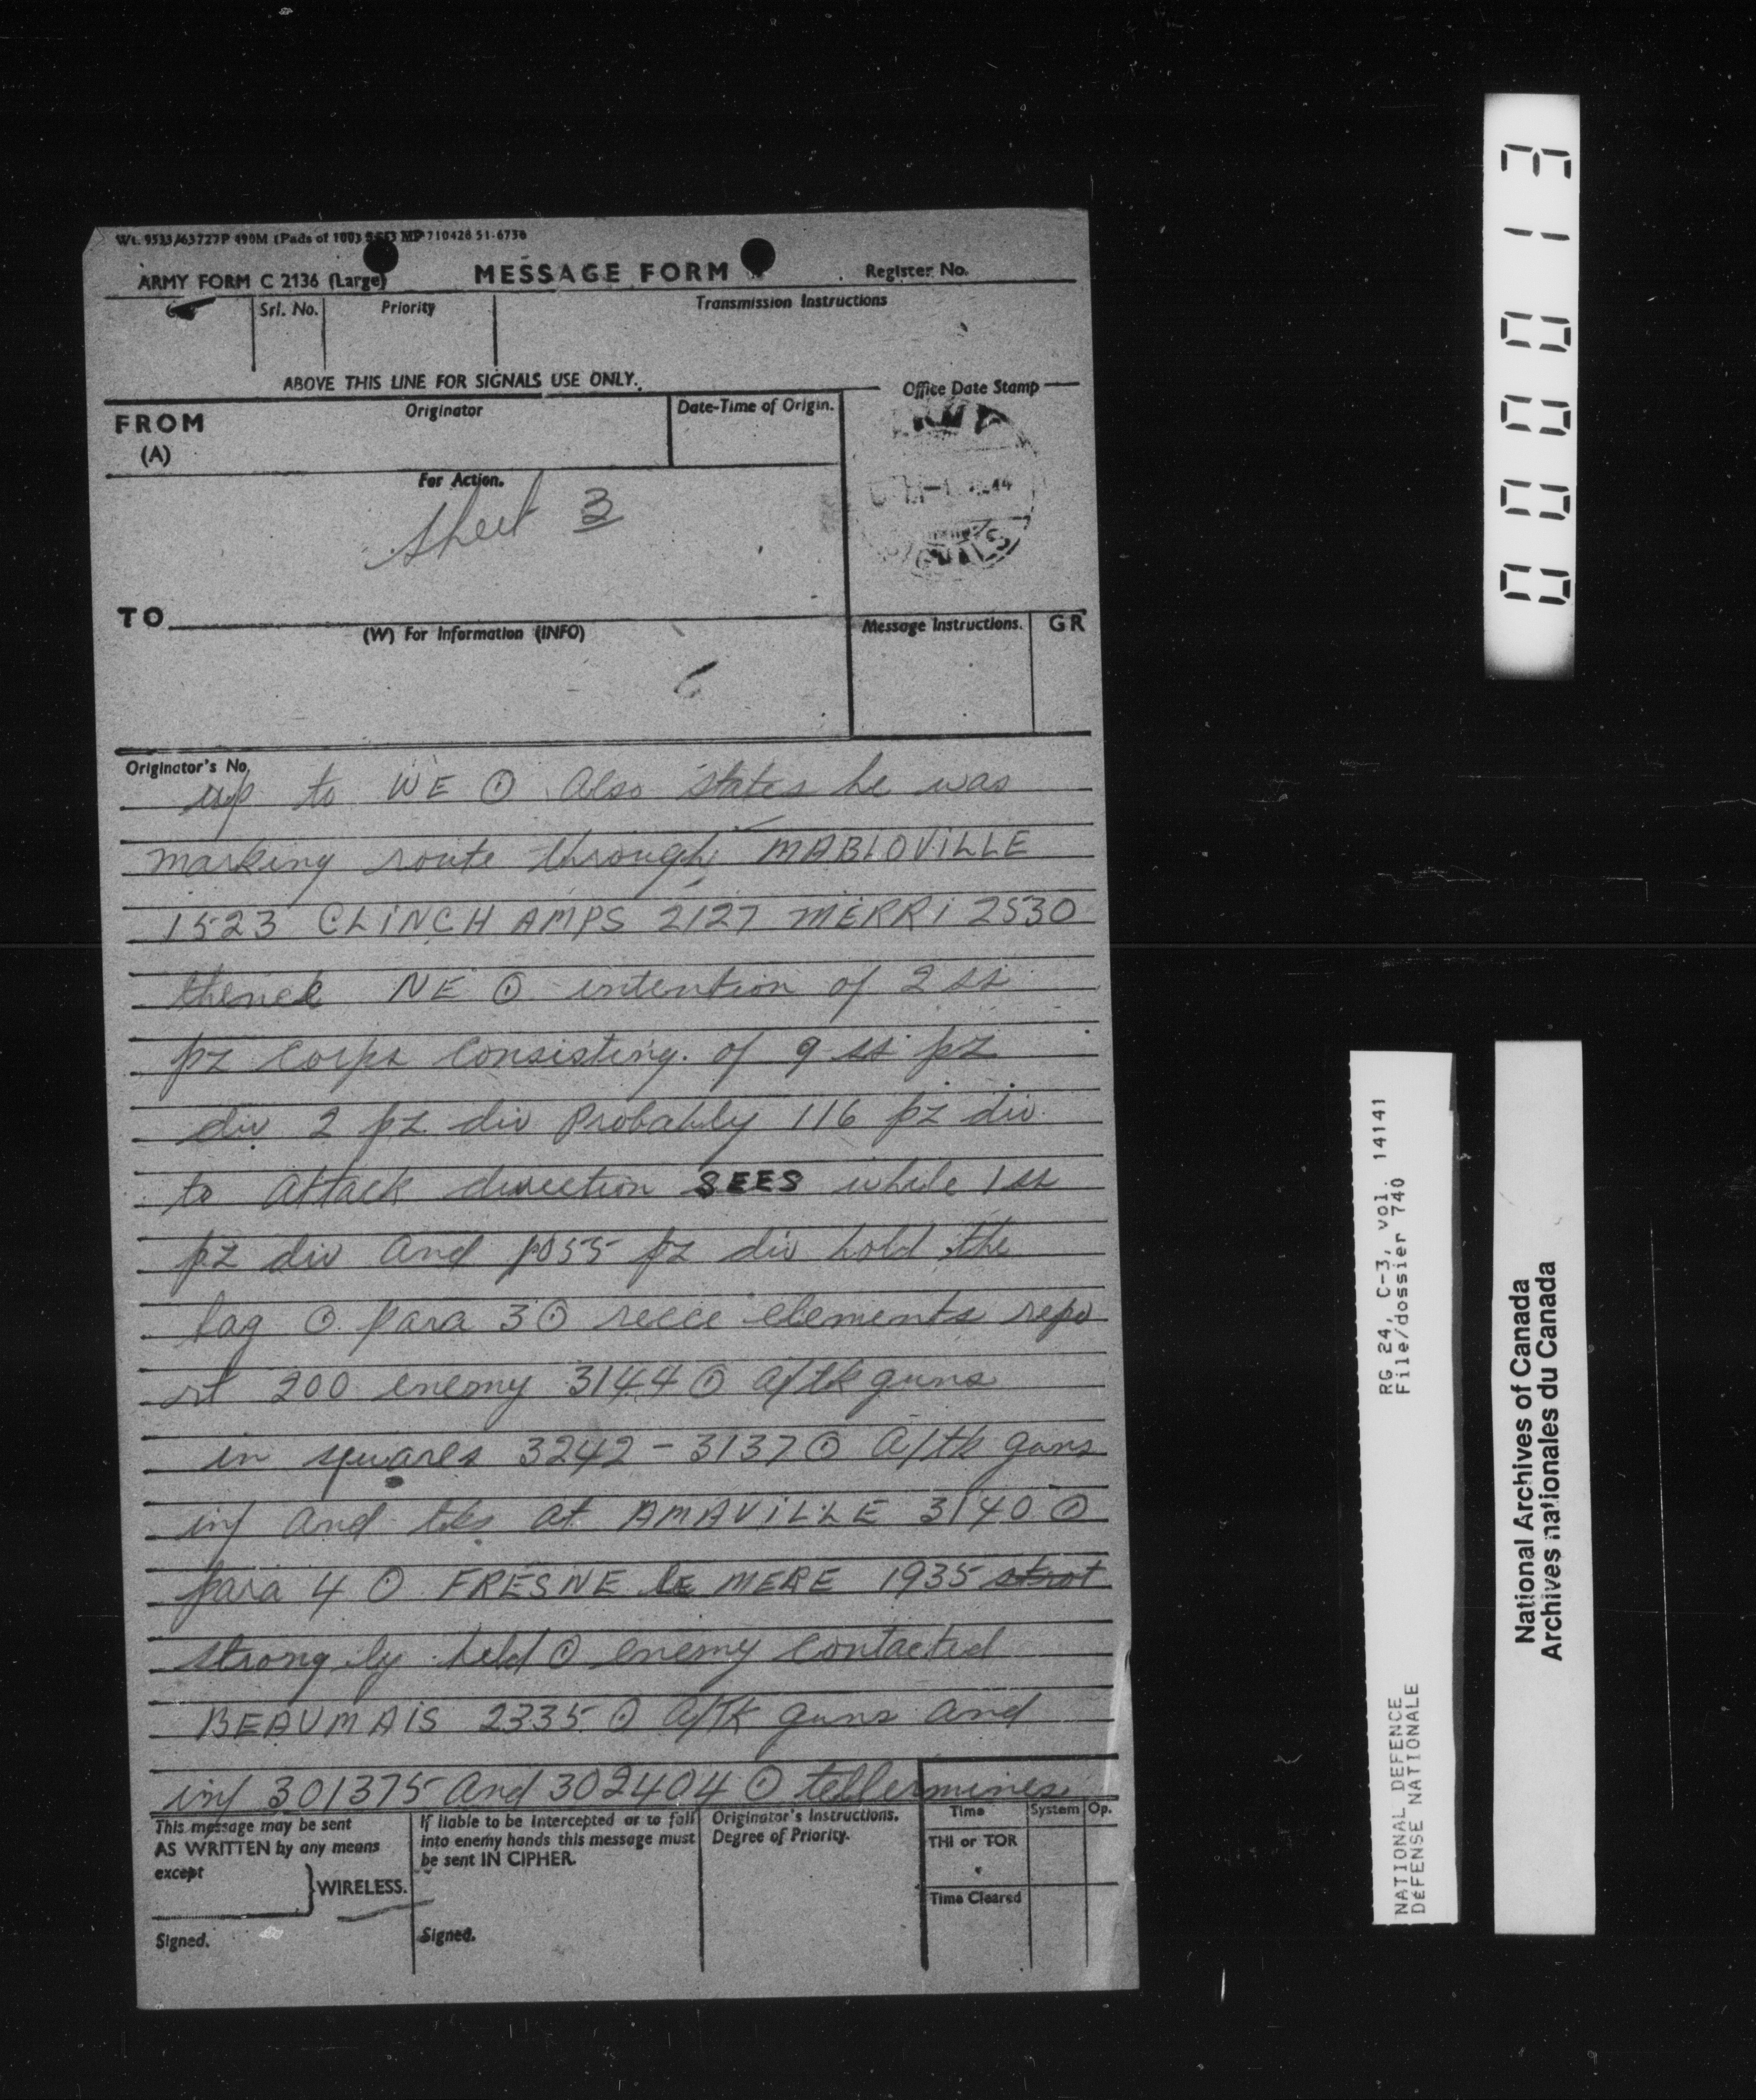 Wt. 9533/63727P 490M (Pads of 100) MP 710428 51-6736
ARMY FORM C 2136 (Large)
MESSAGE FORM
Register No.
Srl. No.
Priority
Transmission Instructions
ABOVE THIS LINE FOR SIGNALS USE ONLY.
FROM
(A)
Originator
Date-Time of Origin.
Office Date Stamp
For Action.
Sheet 3
SIGNALS
TO
(W) For Information (INFO)
Message Instructions.
GR
Originator's No.
up to WE ⊙ Also states he was
marking route through MABLOVILLE
1523 CLINCH AMPS 2127 MERRI 2530
thence NE ⊙ intention of 2 ss
pz corps consisting. of 9 ss pz
div 2 pz div Probably 116 pz div
to attack direction SEES while 1 ss
pz div and poss pz div hold the
bag ⊙ para 3 ⊙ recce elements repo
rt 200 enemy 3144 ⊙ a/tk guns
in squares 3242 - 3137 ⊙ A/tk guns
inf and tks at AMAVILLE 3140 ⊙
para 4 ⊙ FRESNE le MERE 1935
strong ly held ⊙ enemy contacted
BEAUMAIS 2335 ⊙ A/TK guns and
inf 301375 and 302404 ⊙ tellermines
This message may be sent
AS WRITTEN by any means
except
WIRELESS.
Signed.
If liable to be intercepted or to fall
into enemy hands this message must
be sent IN CIPHER.
Signed.
Originator's Instructions.
Degree of Priority.
Time
System
Op.
THI or TOR
Time Cleared
000013
RG 24, C-3, vol. 14141
File/dossier 740
NATIONAL DEFENCE
DÉFENSE NATIONALE
National Archives of Canada
Archives nationales du Canada